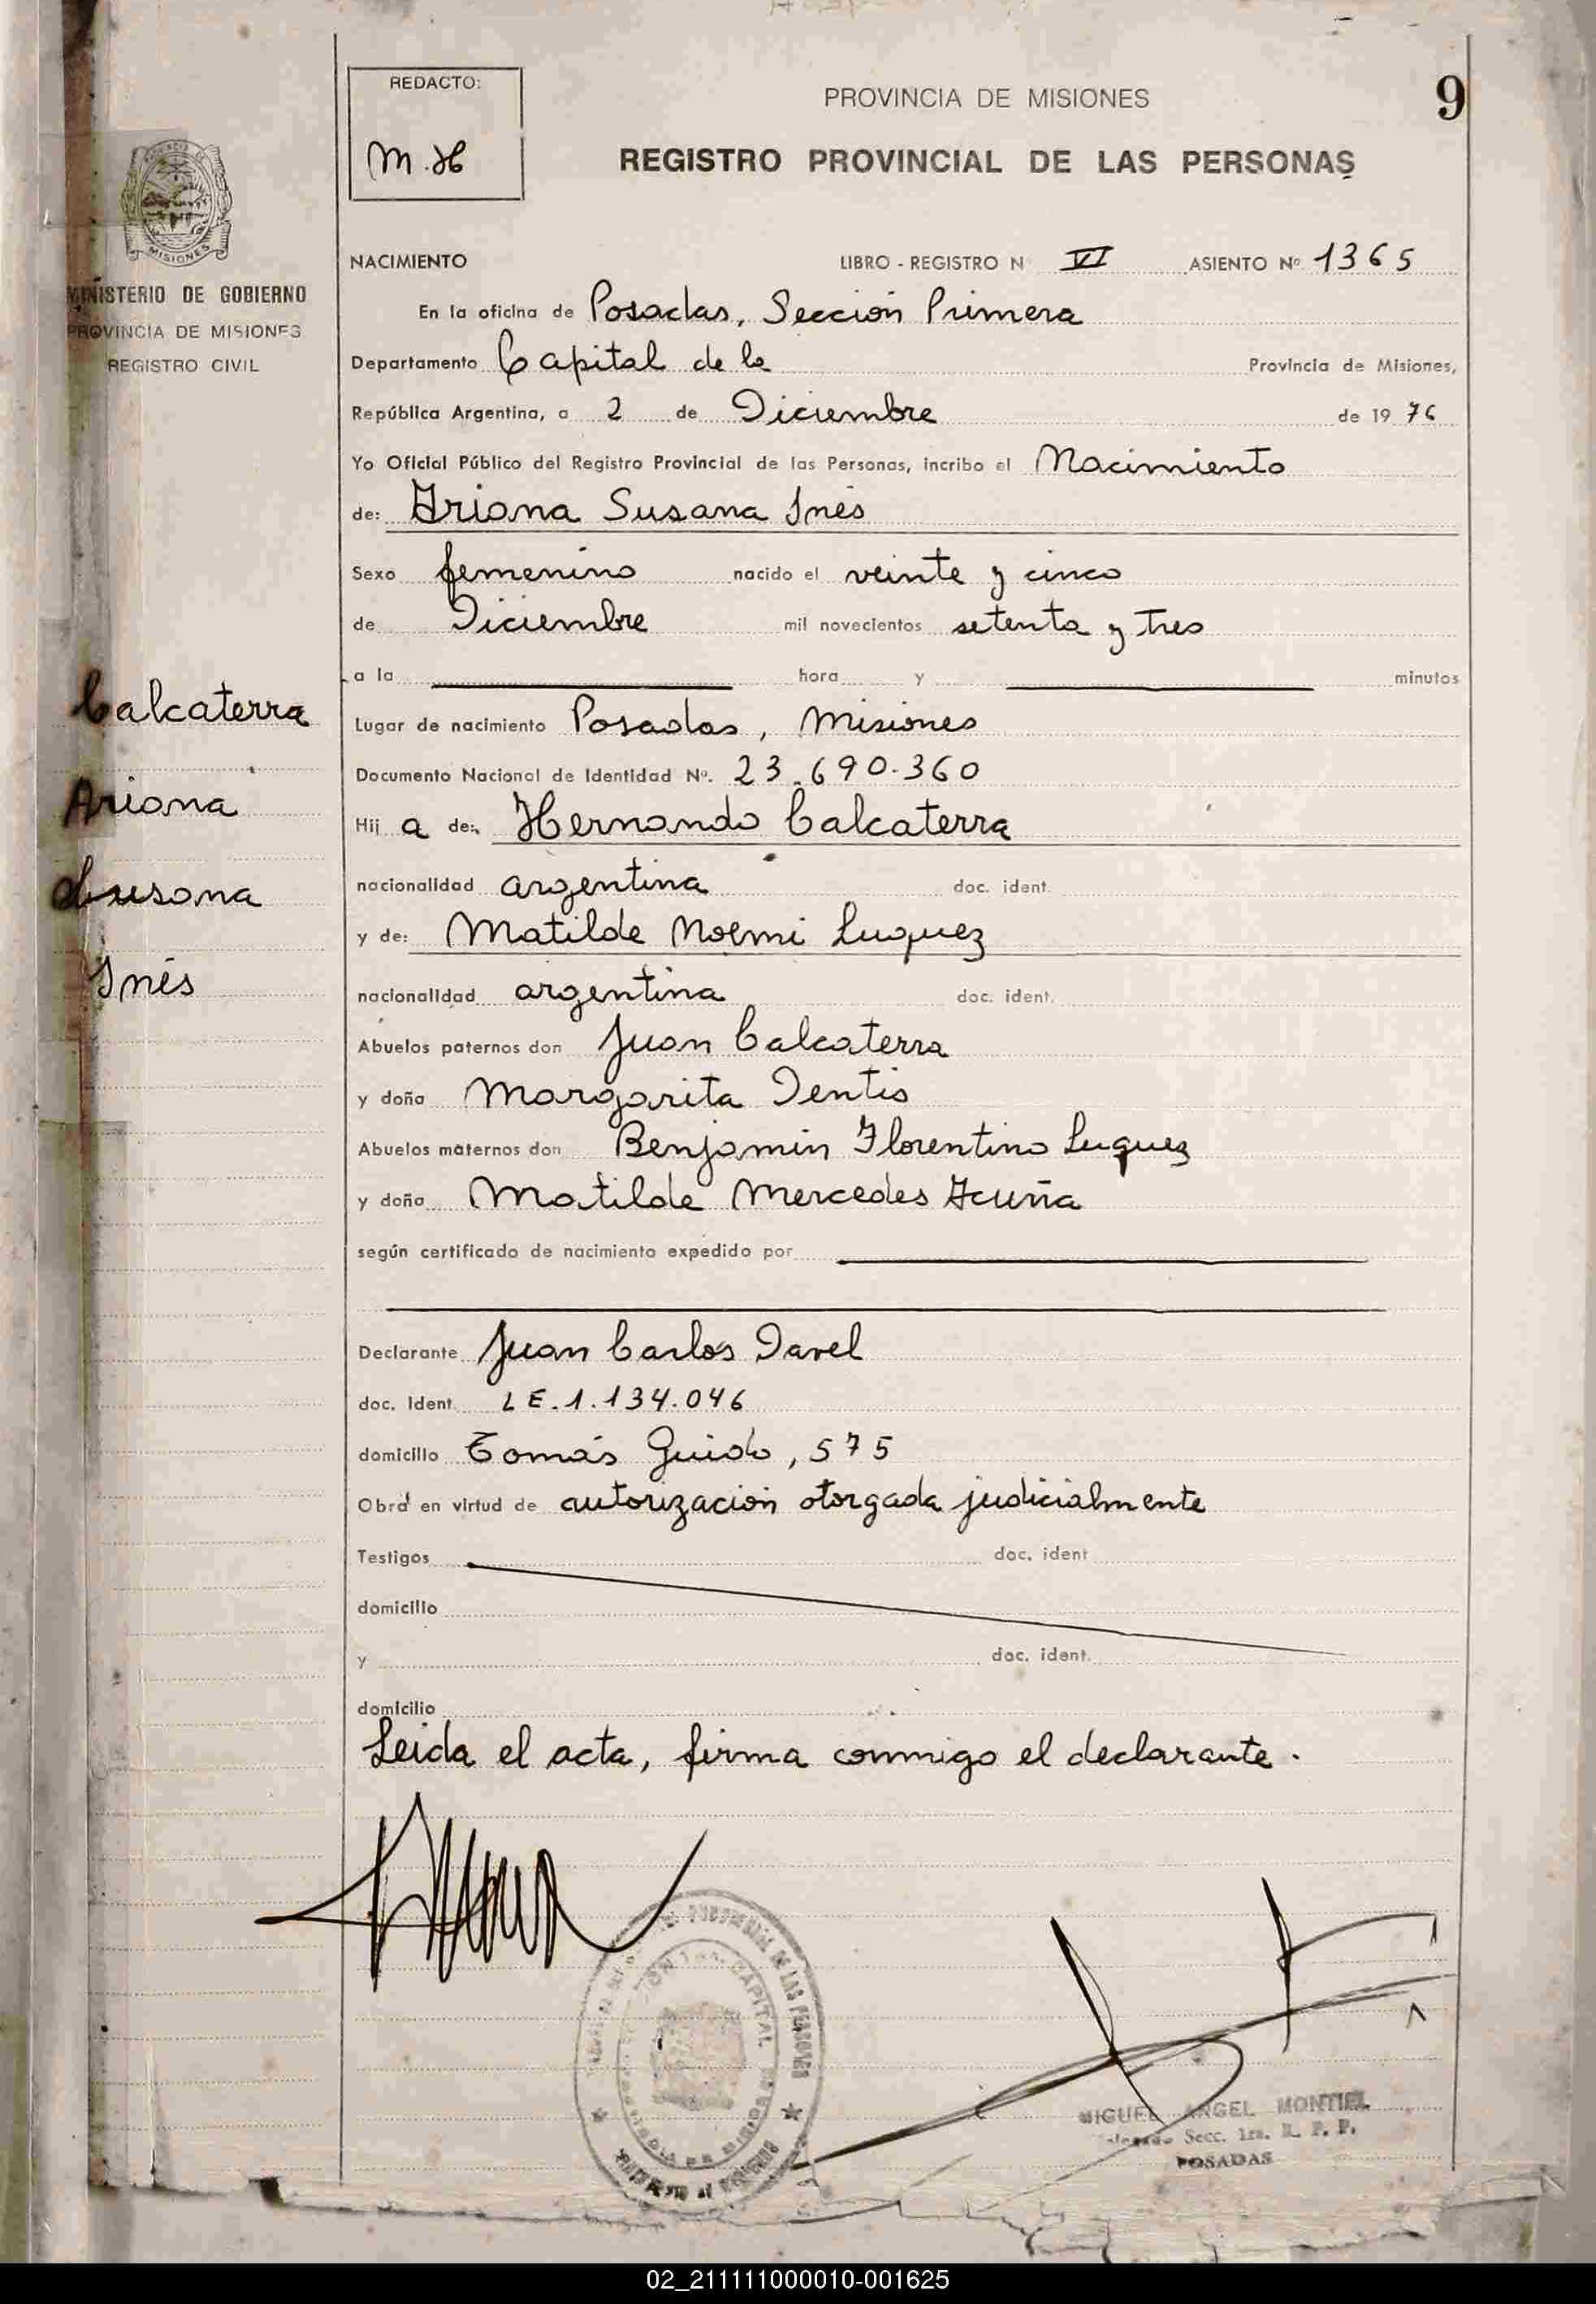 9
REDACTO:
M.H
PROVINCIA DE MISIONES
REGISTRO PROVINCIAL DE LAS PERSONAS
MISIONES
MINISTERIO DE GOBIERNO
PROVINCIA DE MISIONES
REGISTRO CIVIL
NACIMIENTO LIBRO - REGISTRO N VI ASIENTO Nº 1365
En la oficina de Posadas, Sección Primera
Departamento Capital de la Provincia de Misiones,
República Argentina, a 2 de Diciembre de 19 76
Yo Oficial Público del Registro Provincial de las Personas, incribo el Nacimiento
de: Ariana Susana Inés
Sexo femenino nacido el veinte y cinco
de Diciembre mil novecientos setenta y tres
a la hora y minutos
Calcaterra
Ariana
Susana
Inés
Lugar de nacimiento Posadas, Misiones
Documento Nacional de Identidad Nº. 23.690.360
Hij a de: Hernando Calcaterra
nacionalidad argentina doc. ident.
y de: Matilde Noemi Luquez
nacionalidad argentina doc. ident.
Abuelos paternos don Juan Calcaterra
y doña Margarita Dentis
Abuelos maternos don Benjamin Florentino Luquez
y doña Matilde Mercedes Acuña
según certificado de nacimiento expedido por
Declarante Juan Carlos Davel
doc. Ident. LE.1.134.046
domicilio Tomás Guido, 575
Obra en virtud de autorización otorgada judicialmente
Testigos doc. ident
domicilio
y doc. ident.
domicilio
Leida el acta, firma conmigo el declarante.
CAPITAL
DE LAS PERSONAS
MIGUEL ANGEL MONTIEL
Secc. 1ra. R. P. P.
POSADAS
02_211111000010-001625